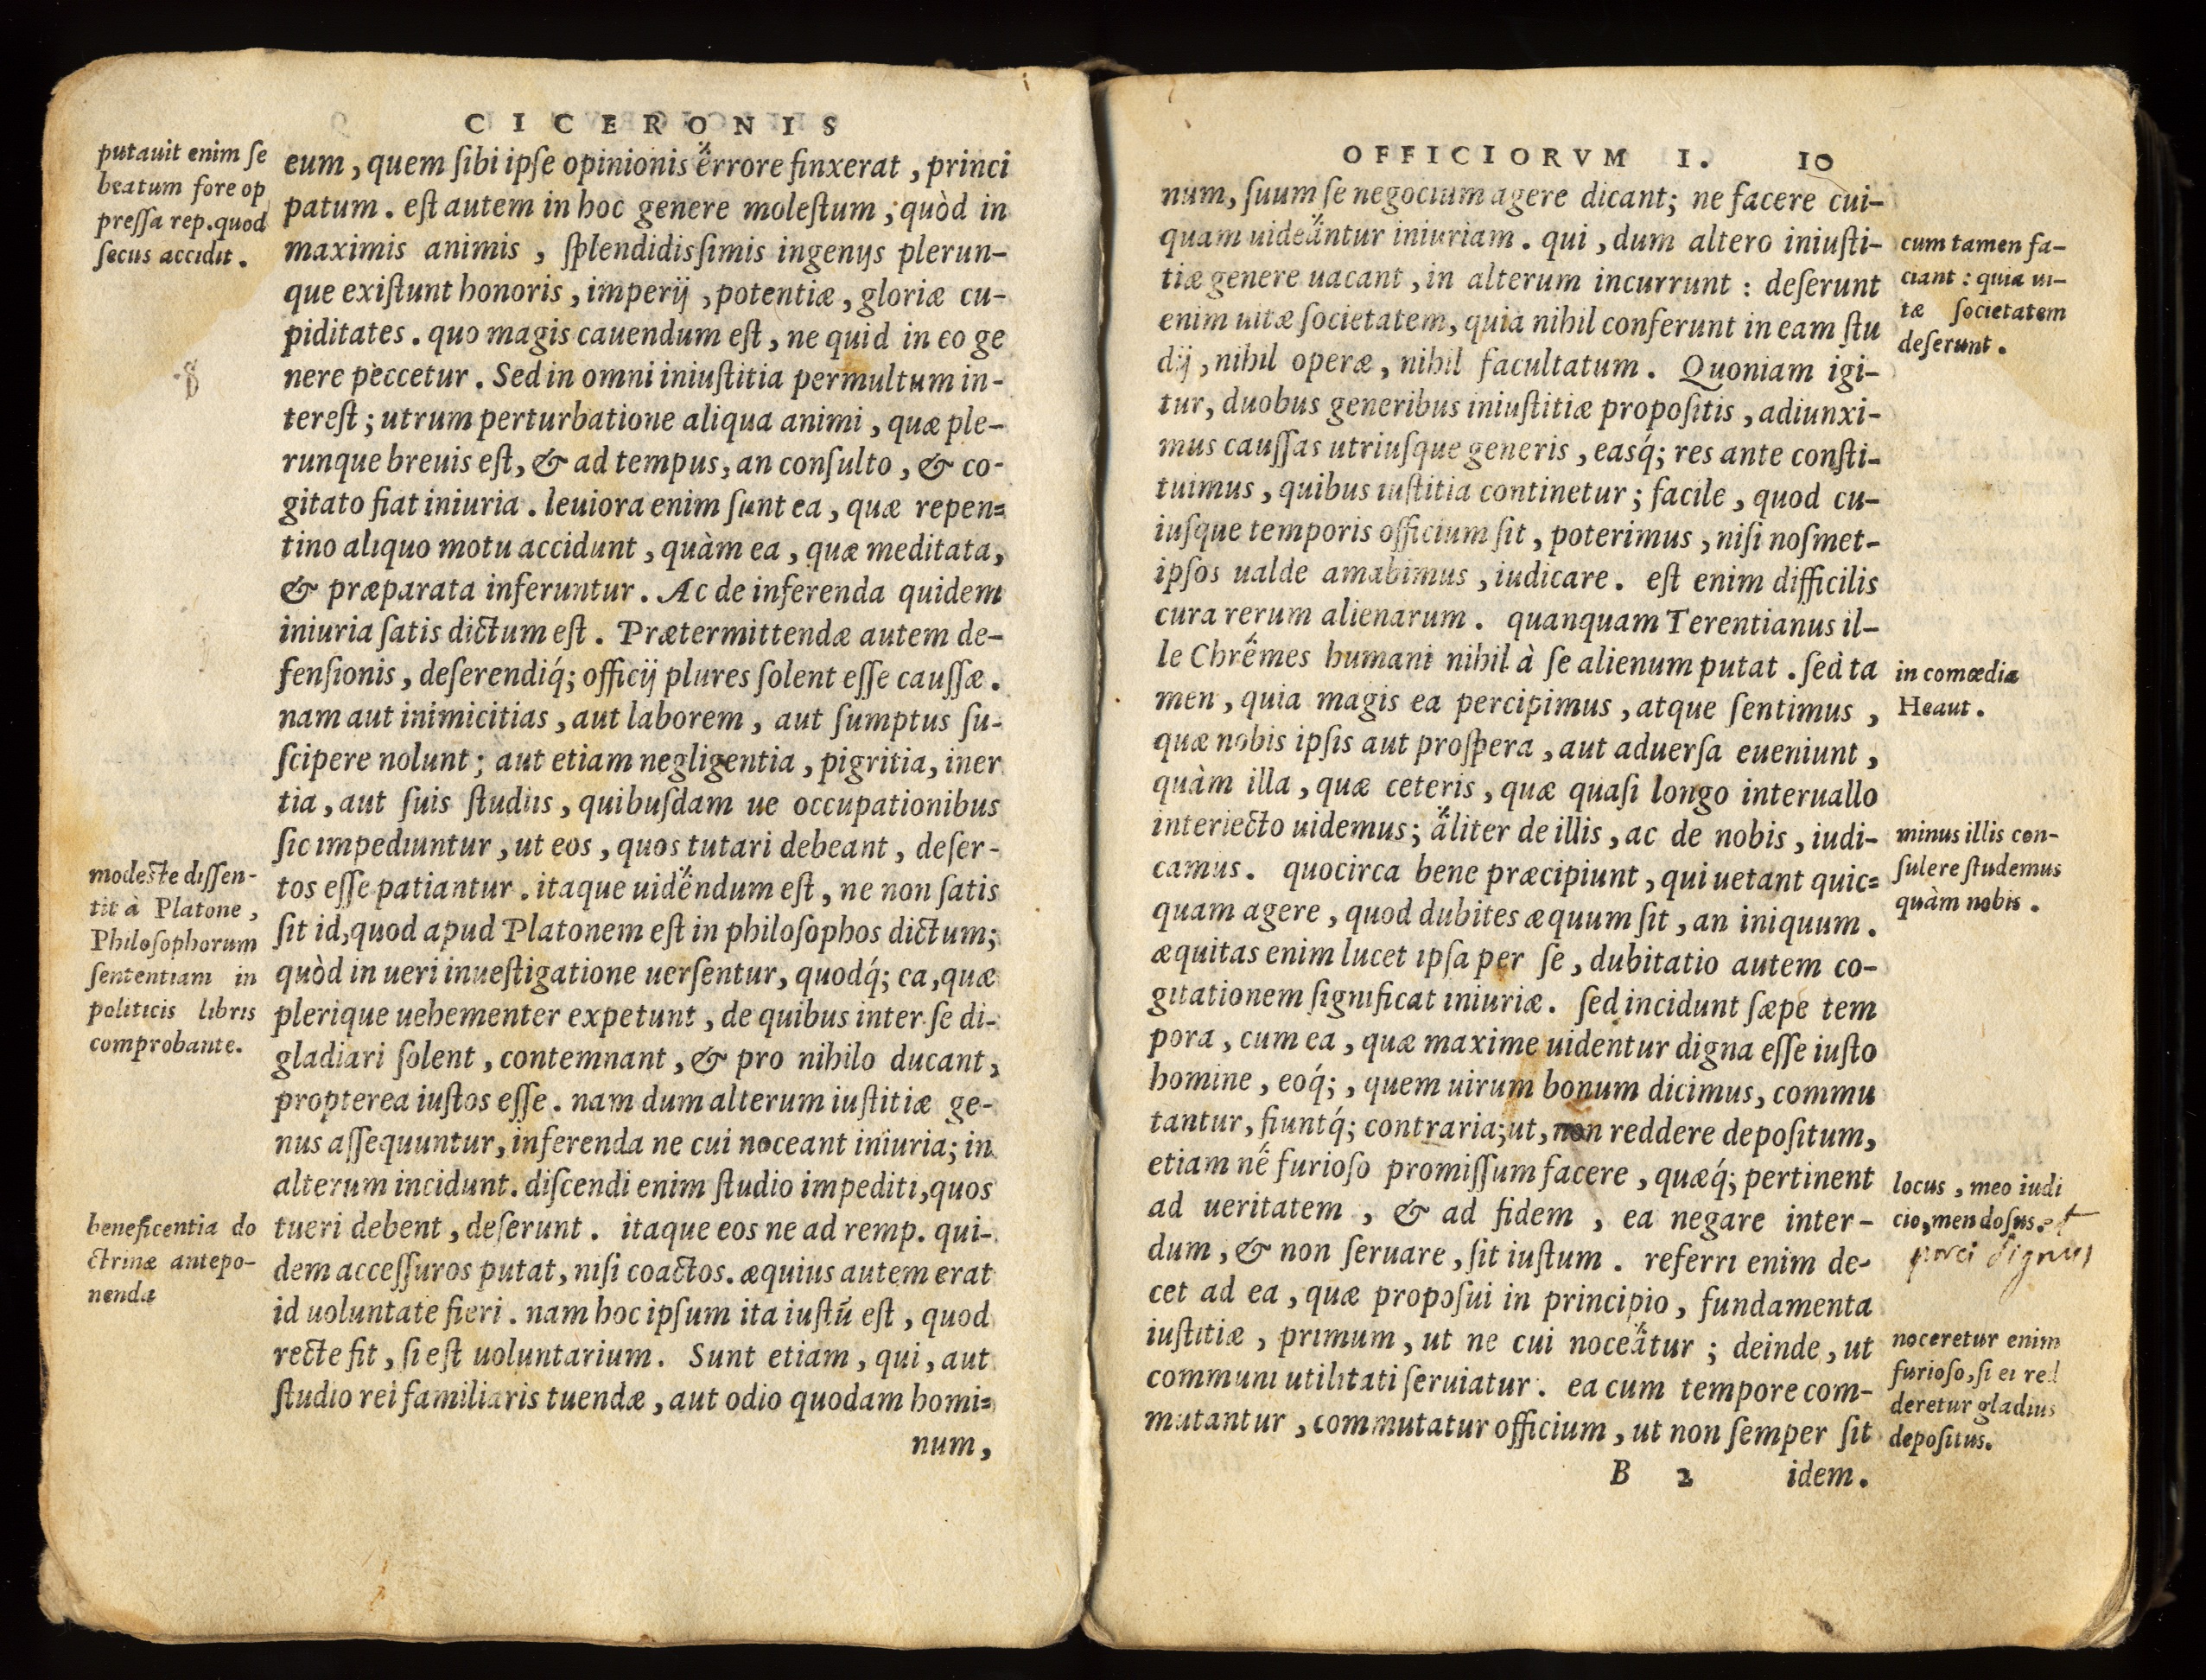 CICERONIS
putauit enim ſe
beatum fore op
preſſa rep. quod
ſecus accidit.
eum, quem ſibi ipſe opinionis errore finxerat, princi
patum. eſt autem in hoc genere moleſtum; quòd in
maximis animis, ſplendidisſimis ingenijs plerun-
que exiſtunt honoris, imperij, potentiæ, gloriæ cu-
piditates. quo magis cauendum eſt, ne quid in eo ge
nere peccetur. Sed in omni iniuſtitia permultum in-
tereſt; utrum perturbatione aliqua animi, quæ ple-
runque breuis eſt, & ad tempus, an conſulto, & co-
gitato fiat iniuria. leuiora enim ſunt ea, quæ repen=
tino aliquo motu accidunt, quàm ea, quæ meditata,
& præparata inferuntur. Ac de inferenda quidem
iniuria ſatis dictum eſt. Prætermittendæ autem de-
fenſionis, deſerendiq́; officij plures ſolent eſſe cauſſæ.
nam aut inimicitias, aut laborem, aut ſumptus ſu-
ſcipere nolunt; aut etiam negligentia, pigritia, iner
tia, aut ſuis ſtudiis, quibuſdam ue occupationibus
ſic impediuntur, ut eos, quos tutari debeant, deſer-
tos eſſe patiantur. itaque uidendum eſt, ne non ſatis
ſit id, quod apud Platonem eſt in philoſophos dictum;
quòd in ueri inueſtigatione uerſentur, quodq́; ea, quæ
plerique uehementer expetunt, de quibus inter ſe di-
gladiari ſolent, contemnant, & pro nihilo ducant,
propterea iuſtos eſſe. nam dum alterum iuſtitiæ ge-
nus aſſequuntur, inferenda ne cui noceant iniuria; in
alterum incidunt. diſcendi enim ſtudio impediti, quos
tueri debent, deſerunt. itaque eos ne ad remp. qui-
dem acceſſuros putat, niſi coactos. æquius autem erat
id uoluntate fieri. nam hoc ipſum ita iuſtũ eſt, quod
recte fit, ſi eſt uoluntarium. Sunt etiam, qui, aut
ſtudio rei familiaris tuendæ, aut odio quodam homi=
num,
modeſte diſſen-
tit à Platone,
Philoſophorum
ſententiam in
politicis libris
comprobante.
beneficentia do
ctrinæ antepo-
nenda
OFFICIORVM I. 10
num, ſuum ſe negocium agere dicant; ne facere cui-
quam uideantur iniuriam. qui, dum altero iniuſti-
tiæ genere uacant, in alterum incurrunt: deſerunt
enim uitæ ſocietatem, quia nihil conferunt in eam ſtu
dij, nihil operæ, nihil facultatum. Quoniam igi-
tur, duobus generibus iniuſtitiæ propoſitis, adiunxi-
mus cauſſas utriuſque generis, easq́; res ante conſti-
tuimus, quibus iuſtitia continetur; facile, quod cu-
iuſque temporis officium ſit, poterimus, niſi noſmet-
ipſos ualde amabimus, iudicare. eſt enim difficilis
cura rerum alienarum. quanquam Terentianus il-
le Chremes humani nihil à ſe alienum putat. ſed ta
men, quia magis ea percipimus, atque ſentimus,
quæ nobis ipſis aut proſpera, aut aduerſa eueniunt,
quàm illa, quæ ceteris, quæ quaſi longo interuallo
interiecto uidemus; aliter de illis, ac de nobis, iudi-
camus. quocirca bene præcipiunt, qui uetant quic=
quam agere, quod dubites æquum ſit, an iniquum.
æquitas enim lucet ipſa per ſe, dubitatio autem co-
gitationem ſignificat iniuriæ. ſed incidunt ſæpe tem
pora, cum ea, quæ maxime uidentur digna eſſe iuſto
homine, eoq́;, quem uirum bonum dicimus, commu
tantur, fiuntq́; contraria; ut, non reddere depoſitum,
etiam ne furioſo promiſſum facere, quæq́; pertinent
ad ueritatem, & ad fidem, ea negare inter-
dum, & non ſeruare, ſit iuſtum. referri enim de-
cet ad ea, quæ propoſui in principio, fundamenta
iuſtitiæ, primum, ut ne cui noceatur; deinde, ut
communi utilitati ſeruiatur. ea cum tempore com-
mutantur, commutatur officium, ut non ſemper ſit
B 2 idem.
cum tamen fa-
ciant: quia ui-
tæ ſocietatem
deſerunt.
in comœdia
Heaut.
minus illis con-
ſulere ſtudemus
quàm nobis.
locus, meo iudi
cio, mendoſus. et
dignus
noceretur enim
furioſo, ſi ei red
deretur gladius
depoſitus.